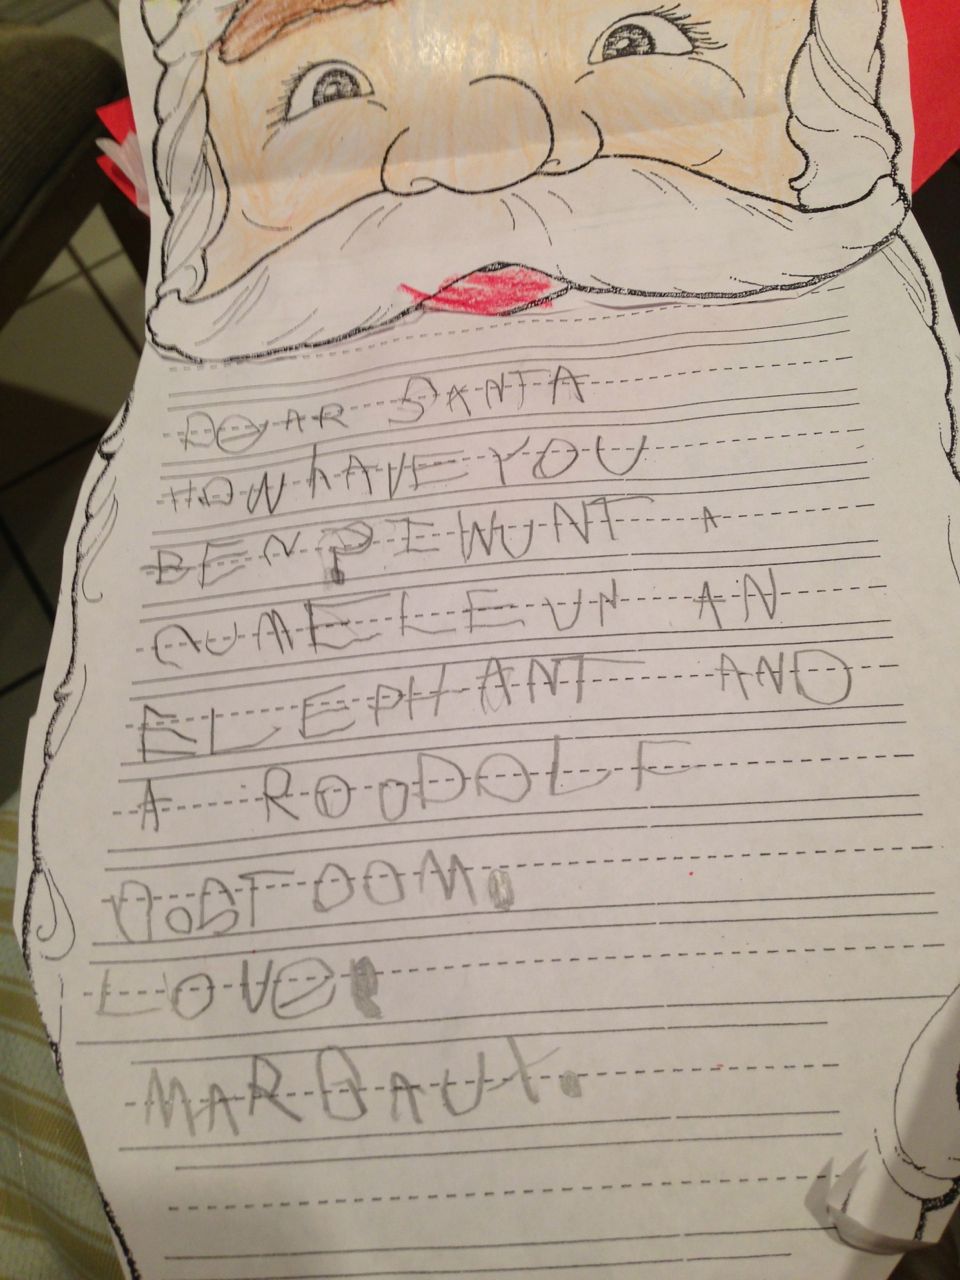 DEAR SANTA
HOW hAVE YOU
BEN PIEWUNT A
CUMELEUN AN
ELEPHANT AND
A ROODOLF
COSTOOM.
LOVE
MARGAUX.